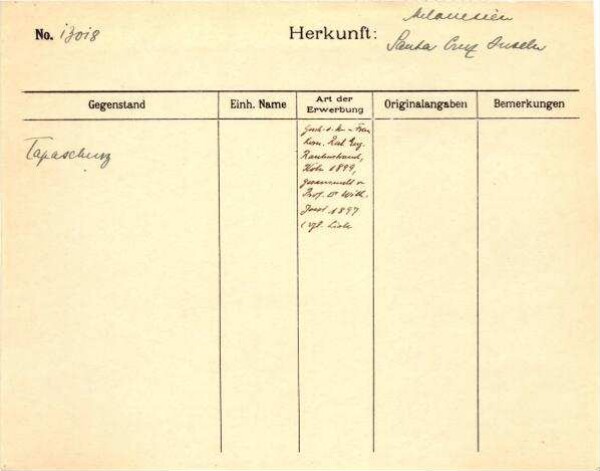 No. 13018
Herkunft:
Melanesien
Santa Cruz Inseln
Gegenstand
Einh. Name
Art der
Erwerbung
Originalangaben
Bemerkungen
Tapaschurz
Gesch. d. H. u. Frau
Kom. Rat Eug.
Rautenstrauch,
Köln 1899,
gesammelt v.
Prof. Dr Wilh.
Joest 1897
(vgl. Liste